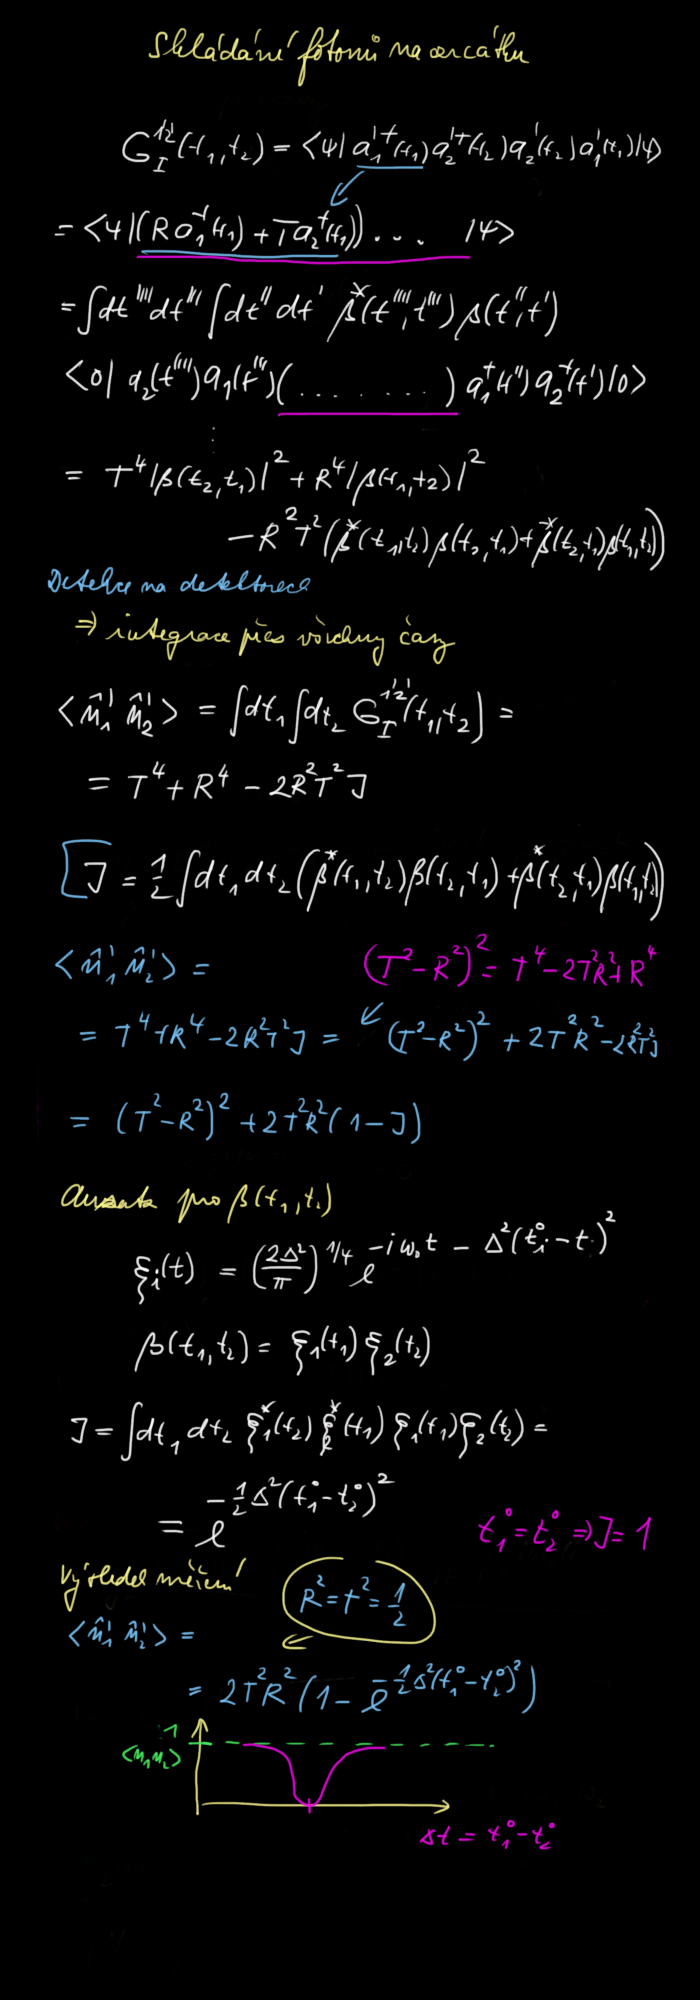 Skládání fotonů na zrcátku
G_I^{1'2'}(t₁,t₂) = <ψ| a₁'⁺(t₁) a₂'⁺(t₂) a₂'(t₂) a₁'(t₁) |ψ>
= <ψ|(R a₁⁺(t₁) + T a₂⁺(t₁)) ... |ψ>
= ∫dt'''' dt''' ∫dt'' dt' β*(t'''',t''') β(t'',t')
<0| a₂(t'''') a₁(t''') (........) a₁⁺(t'') a₂⁺(t') |0>
⋮
= T⁴|β(t₂,t₁)|² + R⁴|β(t₁,t₂)|²
− R²T²(β*(t₁,t₂) β(t₂,t₁) + β*(t₂,t₁) β(t₁,t₂))
Detekce na detektorech
⇒ integrace přes všechny časy
<n̂₁' n̂₂'> = ∫dt₁ ∫dt₂ G_I^{1'2'}(t₁,t₂) =
= T⁴ + R⁴ − 2R²T² J
J = 1/2 ∫dt₁ dt₂ (β*(t₁,t₂) β(t₂,t₁) + β*(t₂,t₁) β(t₁,t₂))
<n̂₁' n̂₂'> = (T² − R²)² = T⁴ − 2T²R² + R⁴
= T⁴ + R⁴ − 2R²T² J = (T² − R²)² + 2T²R² − 2R²T² J
= (T² − R²)² + 2T²R² (1 − J)
Ansatz pro β(t₁,t₂)
ξᵢ(t) = (2Δ²/π)^{1/4} e^{−iω₀t − Δ²(tᵢ⁰ − t)²}
β(t₁,t₂) = ξ₁(t₁) ξ₂(t₂)
J = ∫dt₁ dt₂ ξ₁*(t₂) ξ₂*(t₁) ξ₁(t₁) ξ₂(t₂) =
= e^{−1/2 Δ²(t₁⁰ − t₂⁰)²} t₁⁰ = t₂⁰ ⇒ J = 1
Výsledek měření
R² = T² = 1/2
<n̂₁' n̂₂'> =
= 2T²R² (1 − e^{−1/2 Δ²(t₁⁰ − t₂⁰)²})
1
<n₁n₂>
Δt = t₁⁰ − t₂⁰